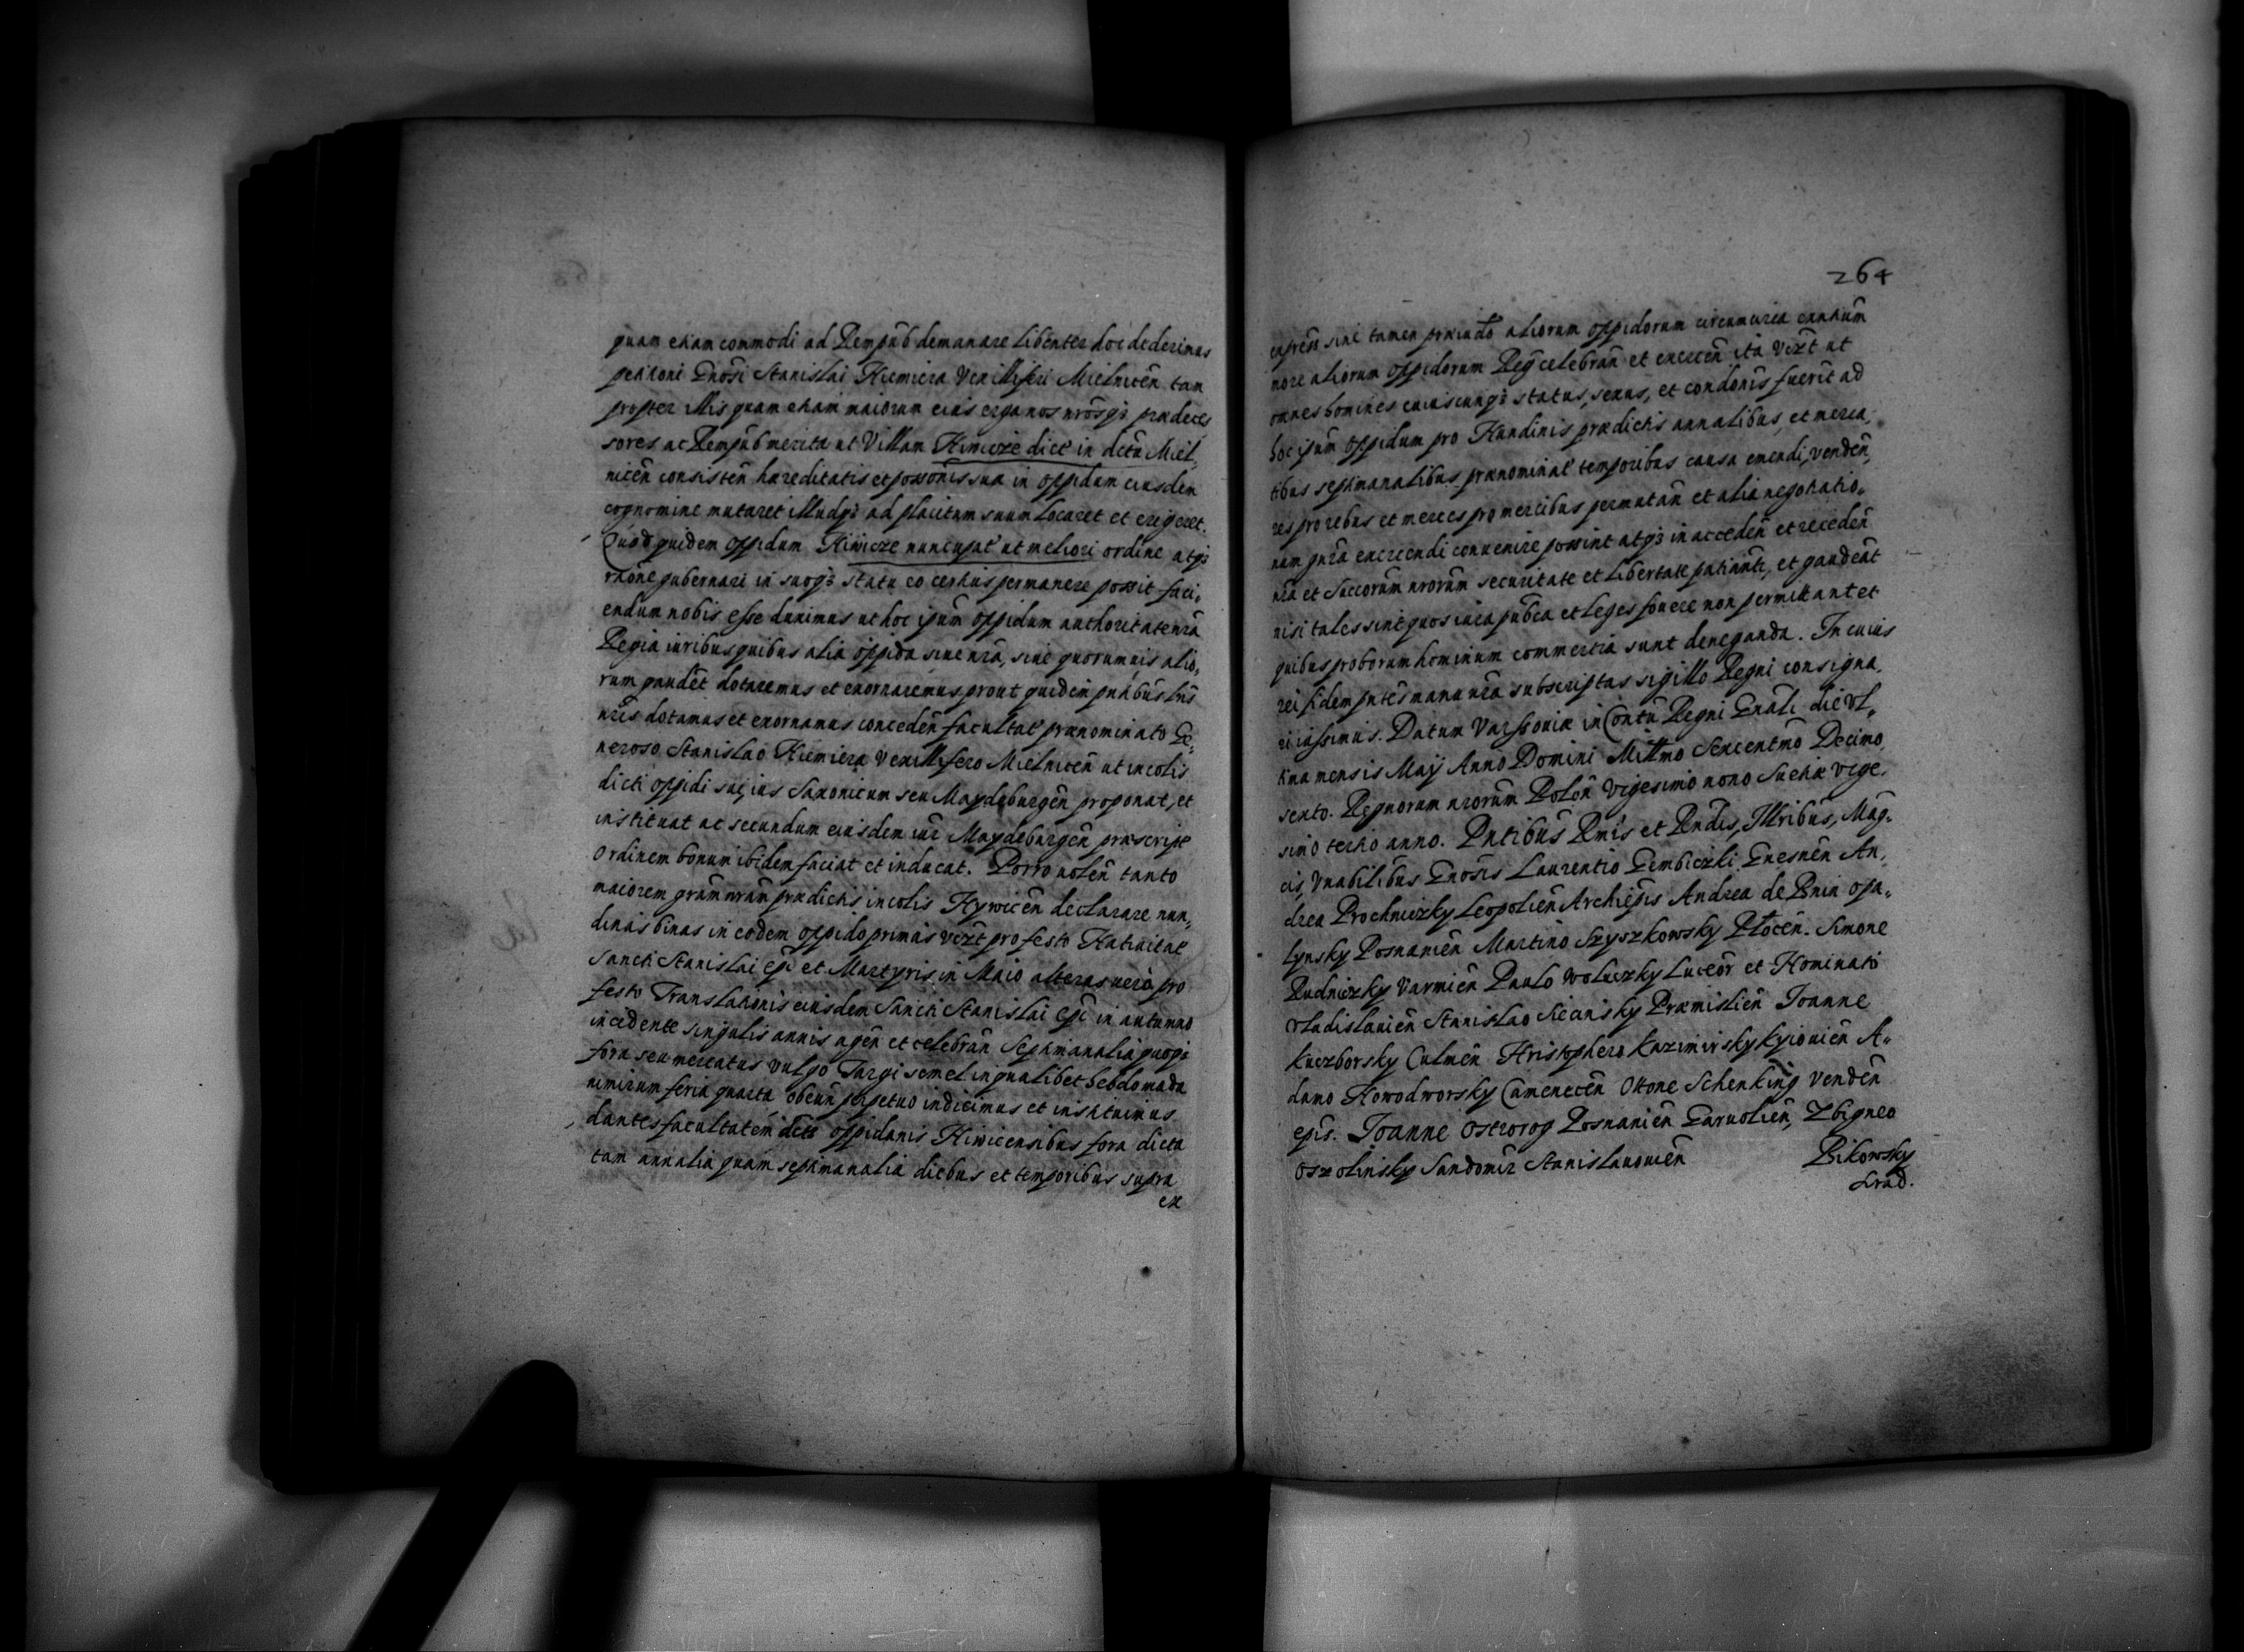 quam etiam commodi ad Rempub̃ demanare libenter hoc dederimus
petitioni Gnõsi Stanislai Niemiera Vexilliferi Mielnicẽn tam
propter illis quam etiam maiorum eius erga nos nrõsq3 prædeces
sores ac Rempub̃ merita ut Villam Niwicze dict̃ in dctũ Miel,
nicẽn consistẽn hæreditatis et possonis suæ in oppidum eiusdem
cognomine mutaret illudq3 ad placitum suum locaret et erigeret.
Quod quidem oppidum Niwicze nuncupat̃ ut meliori ordine atq3
rhõne gubernari in suoq3 statu eo certius permanere possit faci,
endum nobis esse duximus ut hoc ipsum oppidum authoritate nrã
Regia iuribus quibus alia oppida siue nrã, siue quorumuis alio,
rum gaudẽt dotaremus et exornaremus prout quidem pntibus lrĩs
nrĩs dotamus et exornamus conceden̄ facultat̃ prænominato Ge,
neroso Stanislao Niemiera Vexillifero Mielnicẽn ut incolis
dicti oppidi sui, ius Saxonicum seu Maydeburgẽn proponat, et
instituat ac secundum eiusdem iur̃ Maydeburgẽn præscript̃
Ordinem bonum ibidem faciat et inducat. Porro nolẽn tanto
maiorem grãm nrãm prædictis incolis Hywicẽn declarare nun,
dinas binas in eodem oppido primas vizt̃ pro festo Natiuitat̃
Sancti Stanislai Epĩ et Martyris in Maio alteras uero pro
festo Translationis eiusdem Sancti Stanislai Epĩ in autumno
incidente singulis annis agẽn et celebrãn Septimanalia quoq3
fora seu mercatus vulgo Targi semel in qualibet hebdomada
nimirum feria quarta obeũn perpetuo indicimus et instituimus
dantes facultatem dcts oppidanis Niwicensibus fora dicta
tam annalia quam septimanalia diebus et temporibus supra
ex
264
expressi sine tamen præiudõ aliorum oppidorum circumcirca exntium̃
more aliorum oppidorum Reg̃ celebran̄ et exercẽn ita vizt̃ ut
omnes homines cuiuscunq3 status, sexus, et condõnis fuerĩt ad
hoc ipsum oppidum pro Nundinis prædictis annalibus, et merca,
tibus septimanalibus prænominat̃ temporibus causa emendi, vendẽn,
res pro rebus et merces pro mercibus permutãn et alia negotiatio,
num gnrã exercendi conuenire possint atq3 in accedẽn et recedẽn
nrã et Succorũm nrorũm securitate et libertate patiantr̃, et gaudeãt
nisi tales sint quos iura pub̃ca et leges fouere non permittant et
quibus proborum hominum commertia sunt deneganda. In cuius
rei fidem pntẽs manu nrã subscriptas sigillo Regni consigna,
ri iussimus. Datum Varssouiæ in Contũ Regni Gnãli die Vl,
tina mensis Maij Anno Domini Mittmõ Sexcentmõ Decimo,
sexto. Regnorum nrorũm Polõn Vigesimo nono Sueciæ vige,
simo tertio anno. Pntibũs Rmĩs et Rndĩs, Illribũs, Mag,
cis, Vnabilibus Gnõsis Laurentio Gembiczki Gnesnẽn An,
drea Prochniczky Leopoliẽn Archiepĩs Andrea de Bnin Opa,
lynsky Posnaniẽn Martino Szyszkowsky Płocẽn. Simone
Rudniczky Varmiẽn Paulo Woluczky Luceor̃ et Nominato
Vladislauiẽn Stanislao Siecinsky Præmisliẽn Ioanne
Kuczborsky Culmẽn Hristophero Kazimirsky Kyiouiẽn A,
damo Nowodworsky Camenecẽn Ottone Schenking Vendẽn
epĩs. Ioanne Ostrorog Posnaniẽn Garuoliẽn, Zbigneo
Oszolinsky Sandomir̃ Stanislauouiẽn
Bikowsky
Sirad.